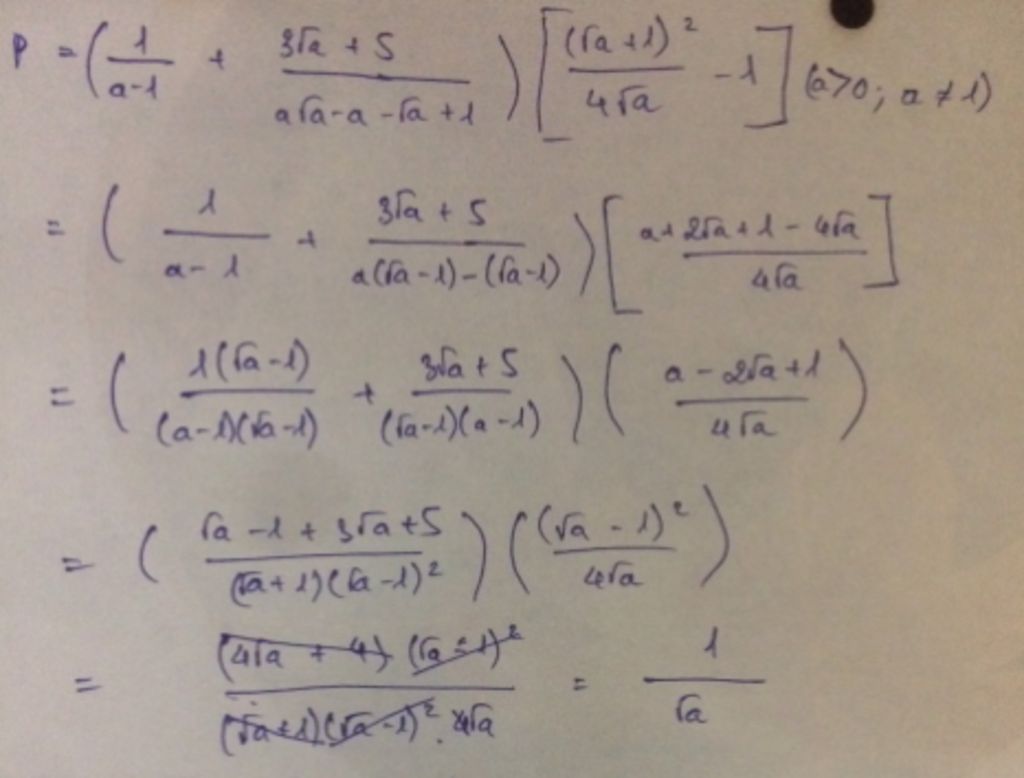 P = ( 1/(a-1) + (3√a + 5)/(a√a - a - √a + 1) ) [ (√a + 1)²/(4√a) - 1 ] (a>0; a ≠ 1)
= ( 1/(a-1) + (3√a + 5)/(a(√a - 1) - (√a - 1)) ) [ (a + 2√a + 1 - 4√a)/(4√a) ]
= ( 1(√a - 1)/((a-1)(√a-1)) + (3√a + 5)/((√a-1)(a-1)) ) ( (a - 2√a + 1)/(4√a) )
= ( (√a - 1 + 3√a + 5)/((√a + 1)(√a - 1)²) ) ( (√a - 1)²/(4√a) )
= (4√a + 4)(√a - 1)²/((√a + 1)(√a - 1)² . 4√a) = 1/√a